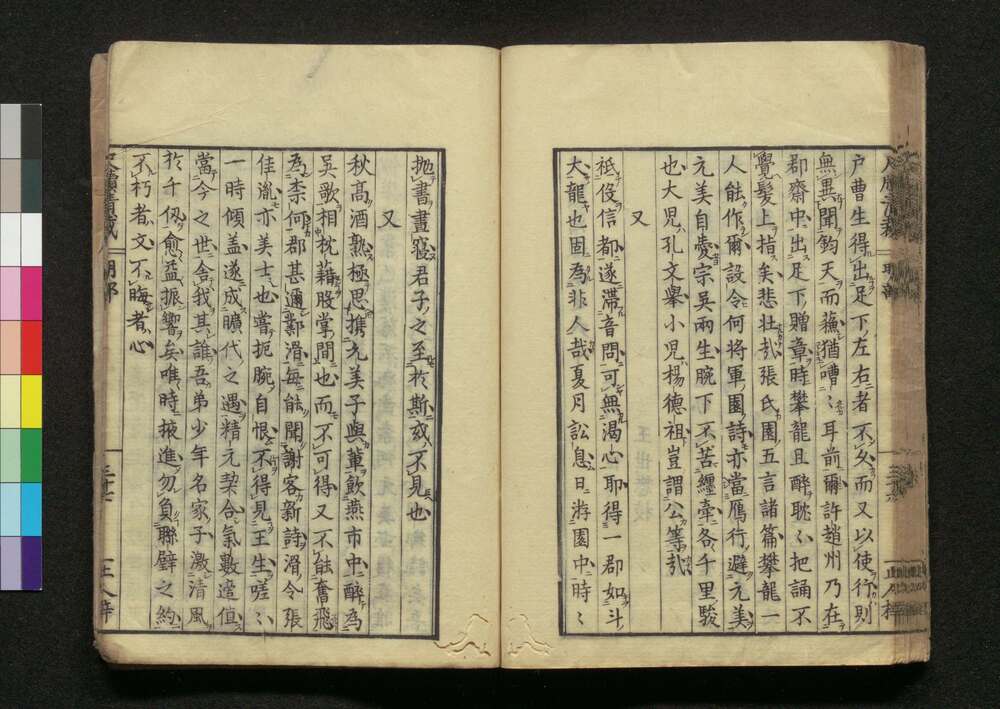 戶曹生得出足下左右者不久而又以使行則
無異聞鈞天而蘓猶嘈〻耳前爾許趙州乃在
郡齋中出足下贈章時攀龍且醉耽〻把誦不
覺髮上指矣悲壯哉張氏園五言諸篇攀龍一
人能作爾設令何將軍園詩亦當鴈行避元美
元美自愛宗吳兩生腕下不苦纏牽各千里駿
也大兒孔文舉小兒楊德祖豈謂公等哉
又
祇役信都遂滯音問可無渴心耶得一郡如斗
大龍也固為非人哉夏月訟息日游園中時〻
拋書晝寢君子之至於斯或不見也
又
秋高酒熟極思携元美子與輩飲燕市中醉為
吳歌相枕藉股掌間也而不可得又不能奮飛
為柰何郡甚邇鄴滑每能聞謝客新詩滑令張
佳胤亦美士也嘗扼腕自恨不得見王生嗟〻
一時傾盖遂成曠代之遇精元契合氣數遭值
當今之世舍我其誰吾弟少年名家子激清風
於千仭愈益振響矣唯時掖進勿負聯璧之約
不朽者文不晦者心
尺牘清裁
明部
三十七